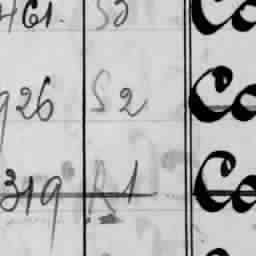 461. S2 Co
926 S2 Co
319 R1 Co